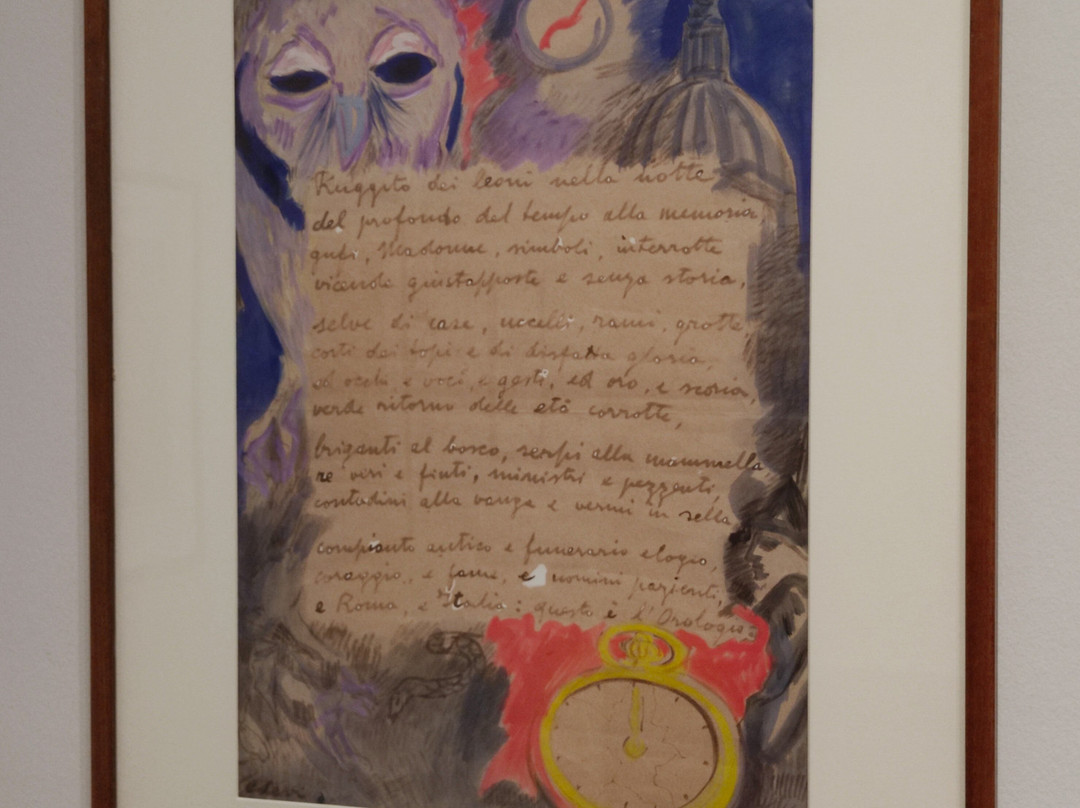 Ruggito dei leoni nella notte
del profondo del tempo alla memoria,
gufi, Madonne, simboli, interrotte
vicende giustapposte e senza storia,
selve di case, uccelli, rami, grotte,
corti dei topi e di disfatta gloria,
ed occhi e voci, e gesti, ed oro, e scoria,
verde ritorno delle età corrotte,
briganti al bosco, serpi alla mammella
re veri e finti, ministri e pezzenti,
contadini alla vanga e vermi in sella
compianto antico e funerario elogio,
coraggio, e fame, e uomini pazienti,
e Roma, e Italia: questo è l'Orologio.